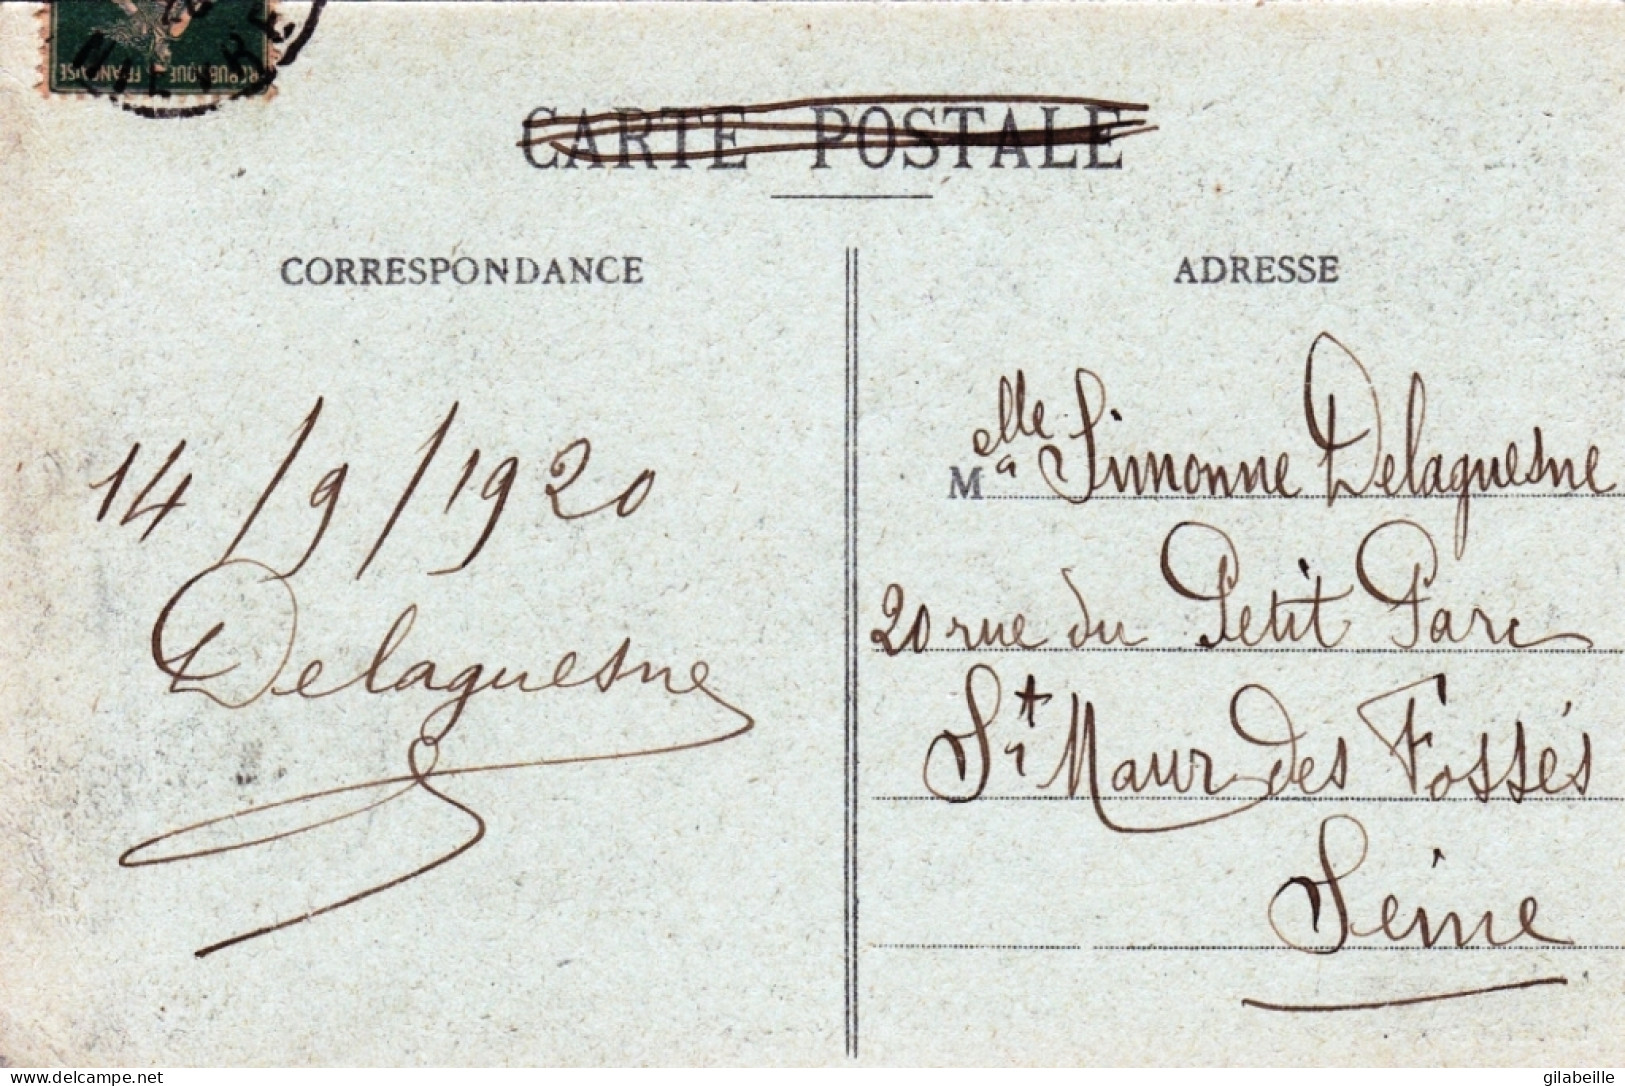 RÉPUBLIQUE FRANÇAISE
NIEVRE
CARTE POSTALE
CORRESPONDANCE
14/9/1920
Delaguesne
ADRESSE
Melle Simonne Delaguesne
20 rue du Petit Parc
St Maur des Fossés
Seine
www.delcampe.net
gilabeille